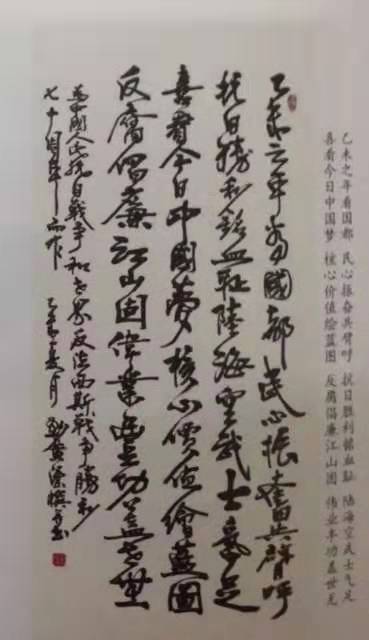 乙未之年看国都 民心振奋共臂呼 抗日胜利铭血耻 陆海空武士气足
喜看今日中国梦 核心价值绘蓝图 反腐倡廉江山固 伟业丰功盖世无
乙未之年看國都民心振奮共臂呼
抗日勝利銘血耻陸海空武士氣足
喜看今日中國夢核心價值繪藍圖
反腐倡廉江山固偉業丰功盖世無
為中國人民抗日戰爭和世界反法西斯戰爭勝利
七十周年而作 乙未年夏月